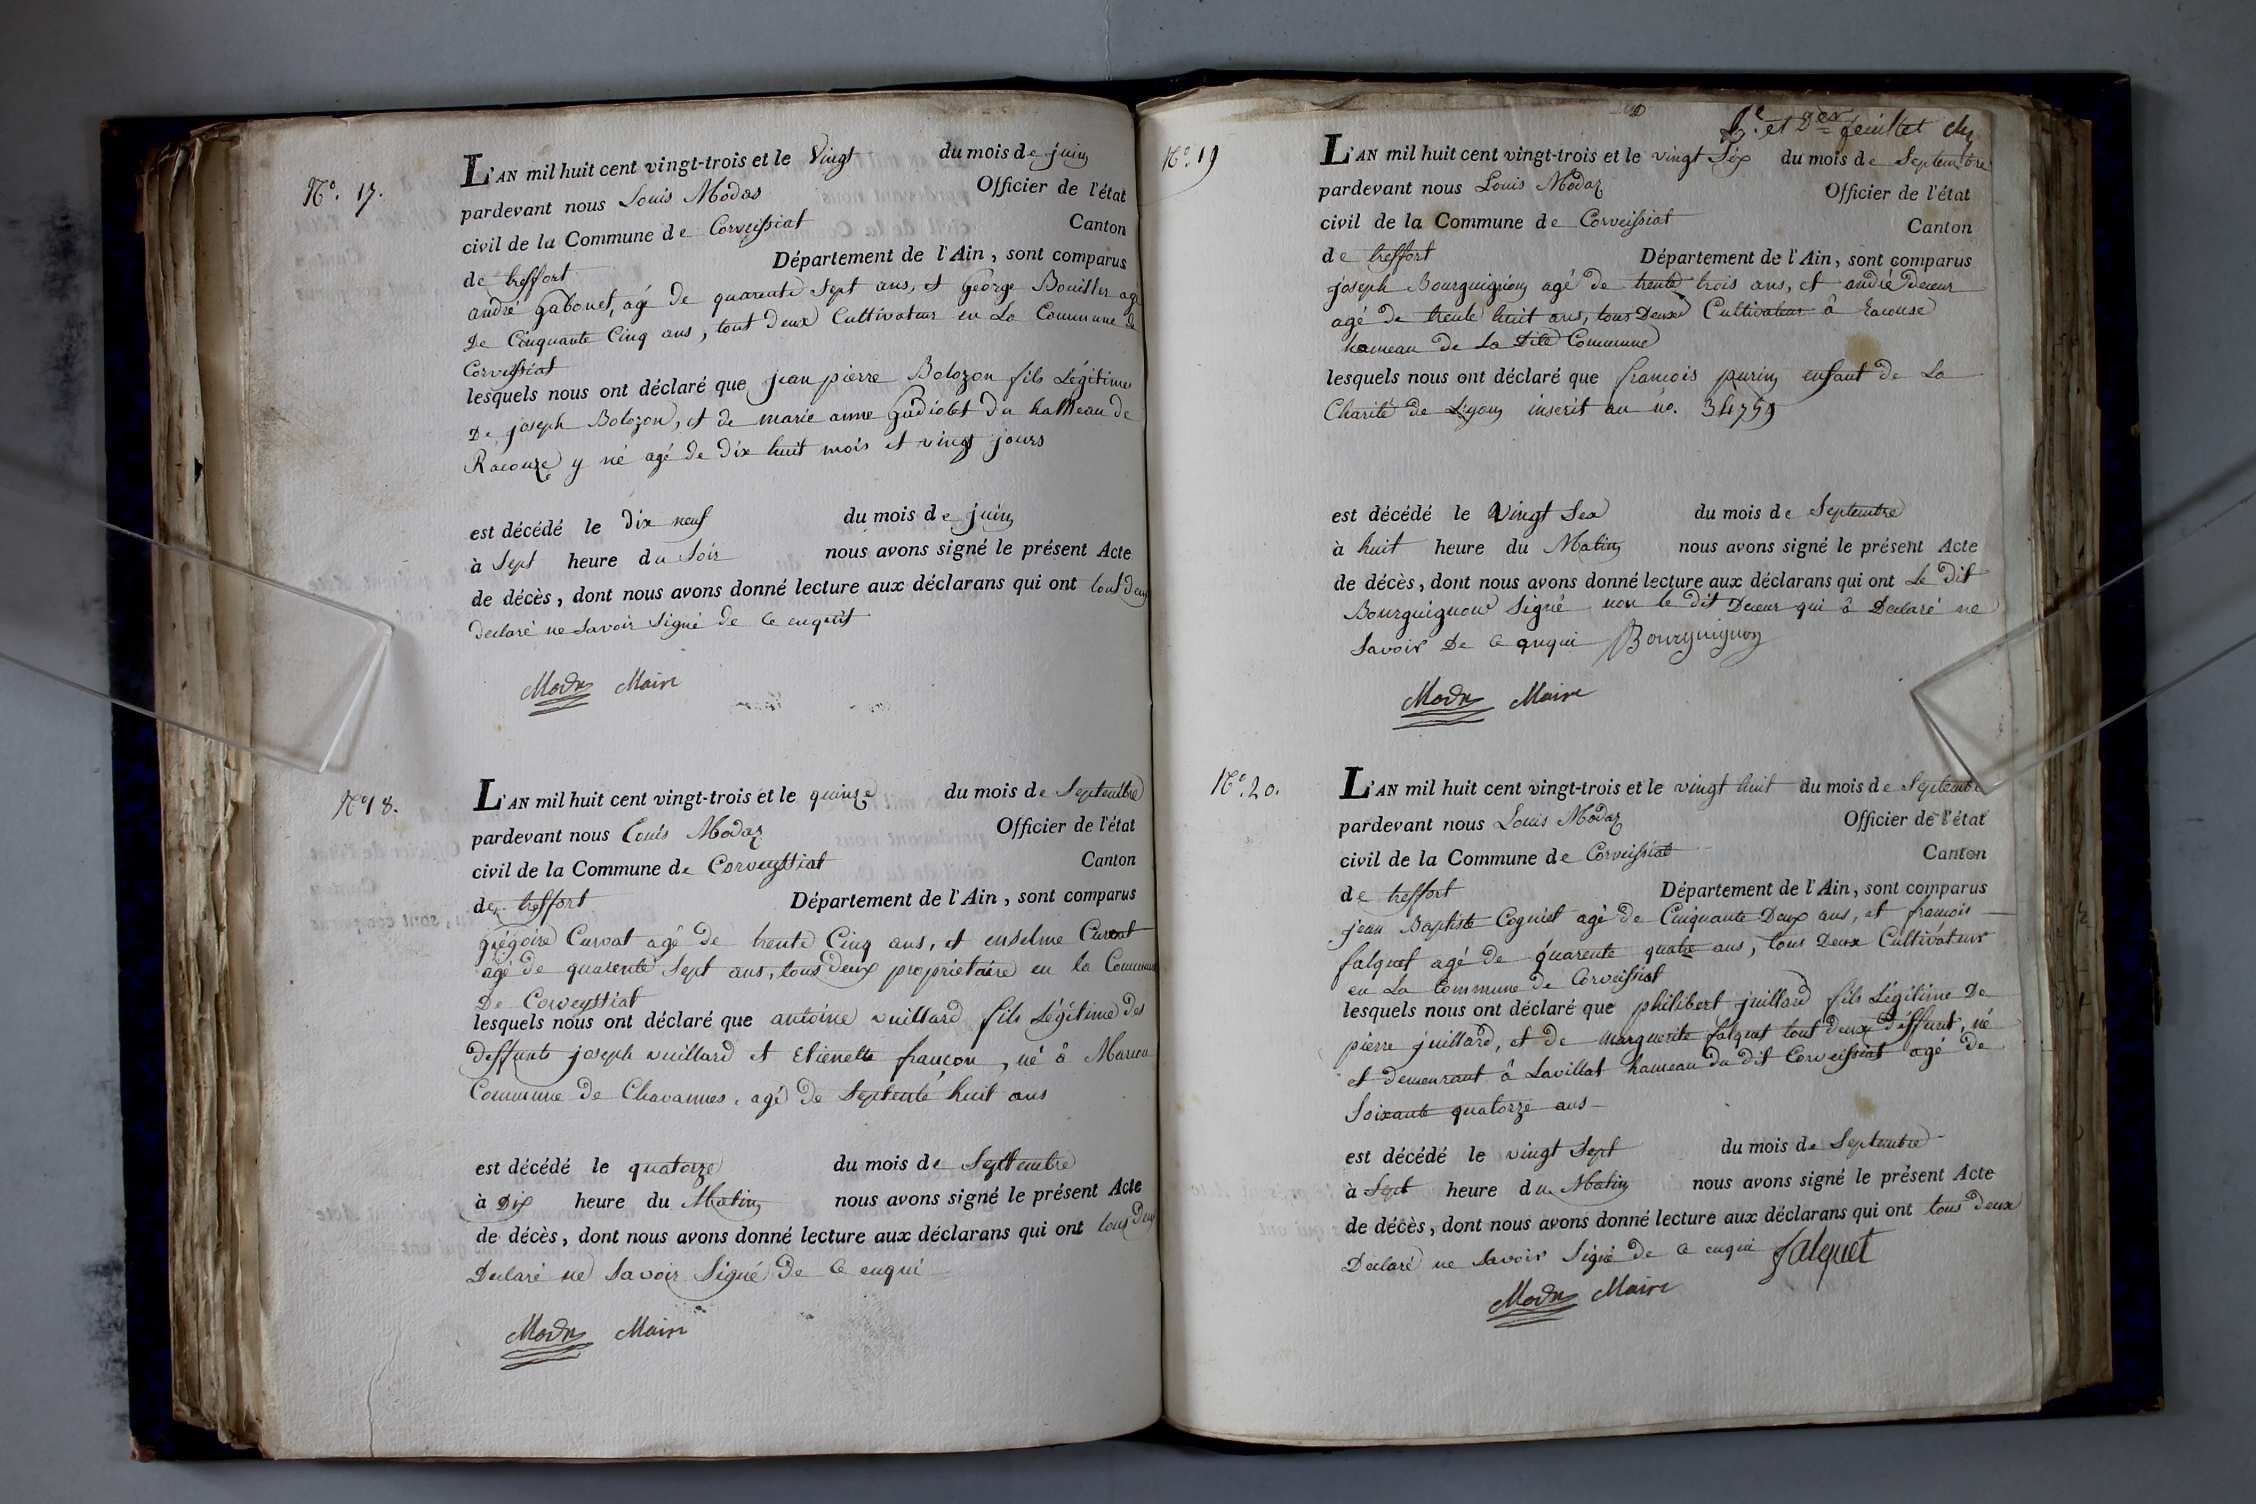 N.º 17.
L'AN mil huit cent vingt-trois et le Vingt du mois de juin
pardevant nous Louis Modas Officier de l'état
civil de la Commune de Corveissiat Canton
de treffort Département de l'Ain, sont comparus
andré gabouet, agé de quarente sept ans, et george Bouiller agé
De Cinquante Cinq ans, tout deux Cultivateur en La Commune de
Corveissiat
lesquels nous ont déclaré que jean pierre Bolozon fils Légitime
De joseph Bolozon, et de marie anne gudiolet du hameau de
Racouze y né agé de dix huit mois et vingt jours
est décédé le dix neuf du mois de juin
à Sept heure du Soir nous avons signé le présent Acte
de décès, dont nous avons donné lecture aux déclarans qui ont tout deux
declaré ne Savoir Signé de Ce enquit
Modas Maire
Nº 18.
L'AN mil huit cent vingt-trois et le quinze du mois de Septembre
pardevant nous Louis Modaz Officier de l'état
civil de la Commune de Corveyssiat Canton
de treffort Département de l'Ain, sont comparus
grégoire Curvat agé de trente Cinq ans, et enselme Curvat
agé de quarente Sept ans, tous deux proprietaire en la Commune
De Corveyssiat
lesquels nous ont déclaré que antoine vuillard fils Légitime des
deffunts joseph vuillard et Etienette françon, né à
Commune de Chavannes, agé de Septente huit ans
est décédé le quatorze du mois de Septembre
à Dix heure du Matin nous avons signé le présent Acte
de décès, dont nous avons donné lecture aux déclarans qui ont tous Deux
Declaré ne Savoir Signé De Ce enqui
Modas Maire
6.e et Der feuillet
N.º 19
L'AN mil huit cent vingt-trois et le vingt Six du mois de Septembre
pardevant nous Louis Modaz Officier de l'état
civil de la Commune de Corveissiat Canton
de treffort Département de l'Ain, sont comparus
joseph Bourguignon agé de trente trois ans, et andré Deceur
agé de trente huit ans, tous Deux Cultivateur à Racouse
hameau de La Dite Commune
lesquels nous ont déclaré que francois purin enfant de La
Charité de Lyon inscrit au no. 34759
est décédé le Vingt Sex du mois de Septembre
à huit heure du Matin nous avons signé le présent Acte
de décès, dont nous avons donné lecture aux déclarans qui ont Le dit
Bourguignon Signé non le dit Deceur qui à Declaré ne
Savoir De Ce enqui Bourguignon
Modas Maire
N.º 20.
L'AN mil huit cent vingt-trois et le vingt huit du mois de Septembre
pardevant nous Louis Modaz Officier de l'état
civil de la Commune de Corveissiat Canton
de treffort Département de l'Ain, sont comparus
jean Baptiste Cogniet agé de Cinquante Deux ans, et francois
falquet agé de quarente quatre ans, tous Deux Cultivateur
en La Commune de Corveissiat
lesquels nous ont déclaré que philibert juillard fils Légitime De
pierre juillard, et de marguerite falquet tout deux deffunt, né
et demeurant à Lavillat hameau du dit Corveissiat agé de
Soixante quatorze ans
est décédé le vingt Sept du mois de Septembre
à Sept heure du Matin nous avons signé le présent Acte
de décès, dont nous avons donné lecture aux déclarans qui ont tous deux
Declaré ne Savoir Signé De Ce enqui falquet
Modas Maire